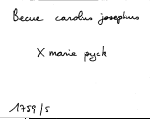 Becue carolus josephus
X marie pyck
1759/5